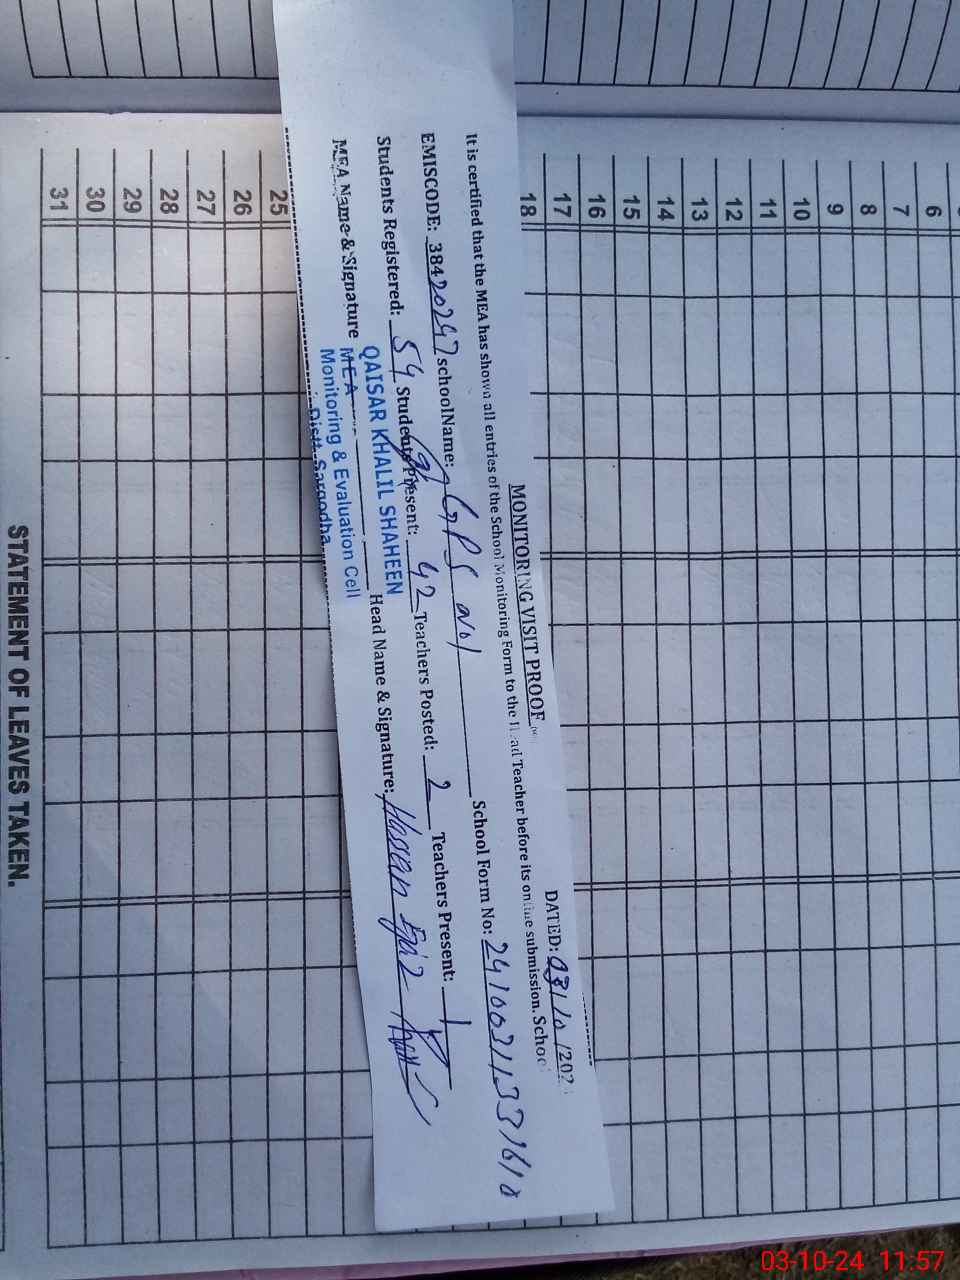 MONITORING VISIT PROOF
DATED: 03/10/202
It is certified that the MEA has shown all entries of the School Monitoring Form to the Head Teacher before its online submission. School
EMISCODE: 38420247 schoolName: GPS No1 School Form No: 24100311331610
Students Registered: 54 Students Present: 42 Teachers Posted: 2 Teachers Present: 1
MEA Name & Signature Head Name & Signature: Hassan
QAISAR KHALIL SHAHEEN
MEA
Monitoring & Evaluation Cell
Distt. Sargodha
6
7
8
9
10
11
12
13
14
15
16
17
18
25
26
27
28
29
30
31
STATEMENT OF LEAVES TAKEN.
03-10-24 11:57